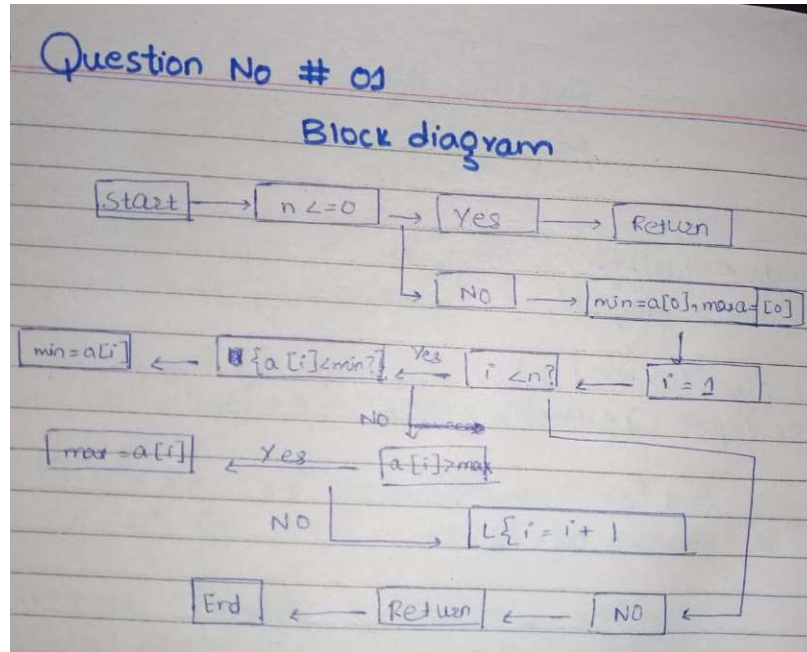 Question No # 01
Block diagram
Start n <=0 Yes Return
NO min=a[0], maxa=[0]
min=a[i] {a[i]<min?} Yes i <n? i = 1
NO
max=a[i] Yes a[i]>max
NO L{ i = i + 1
End Return NO